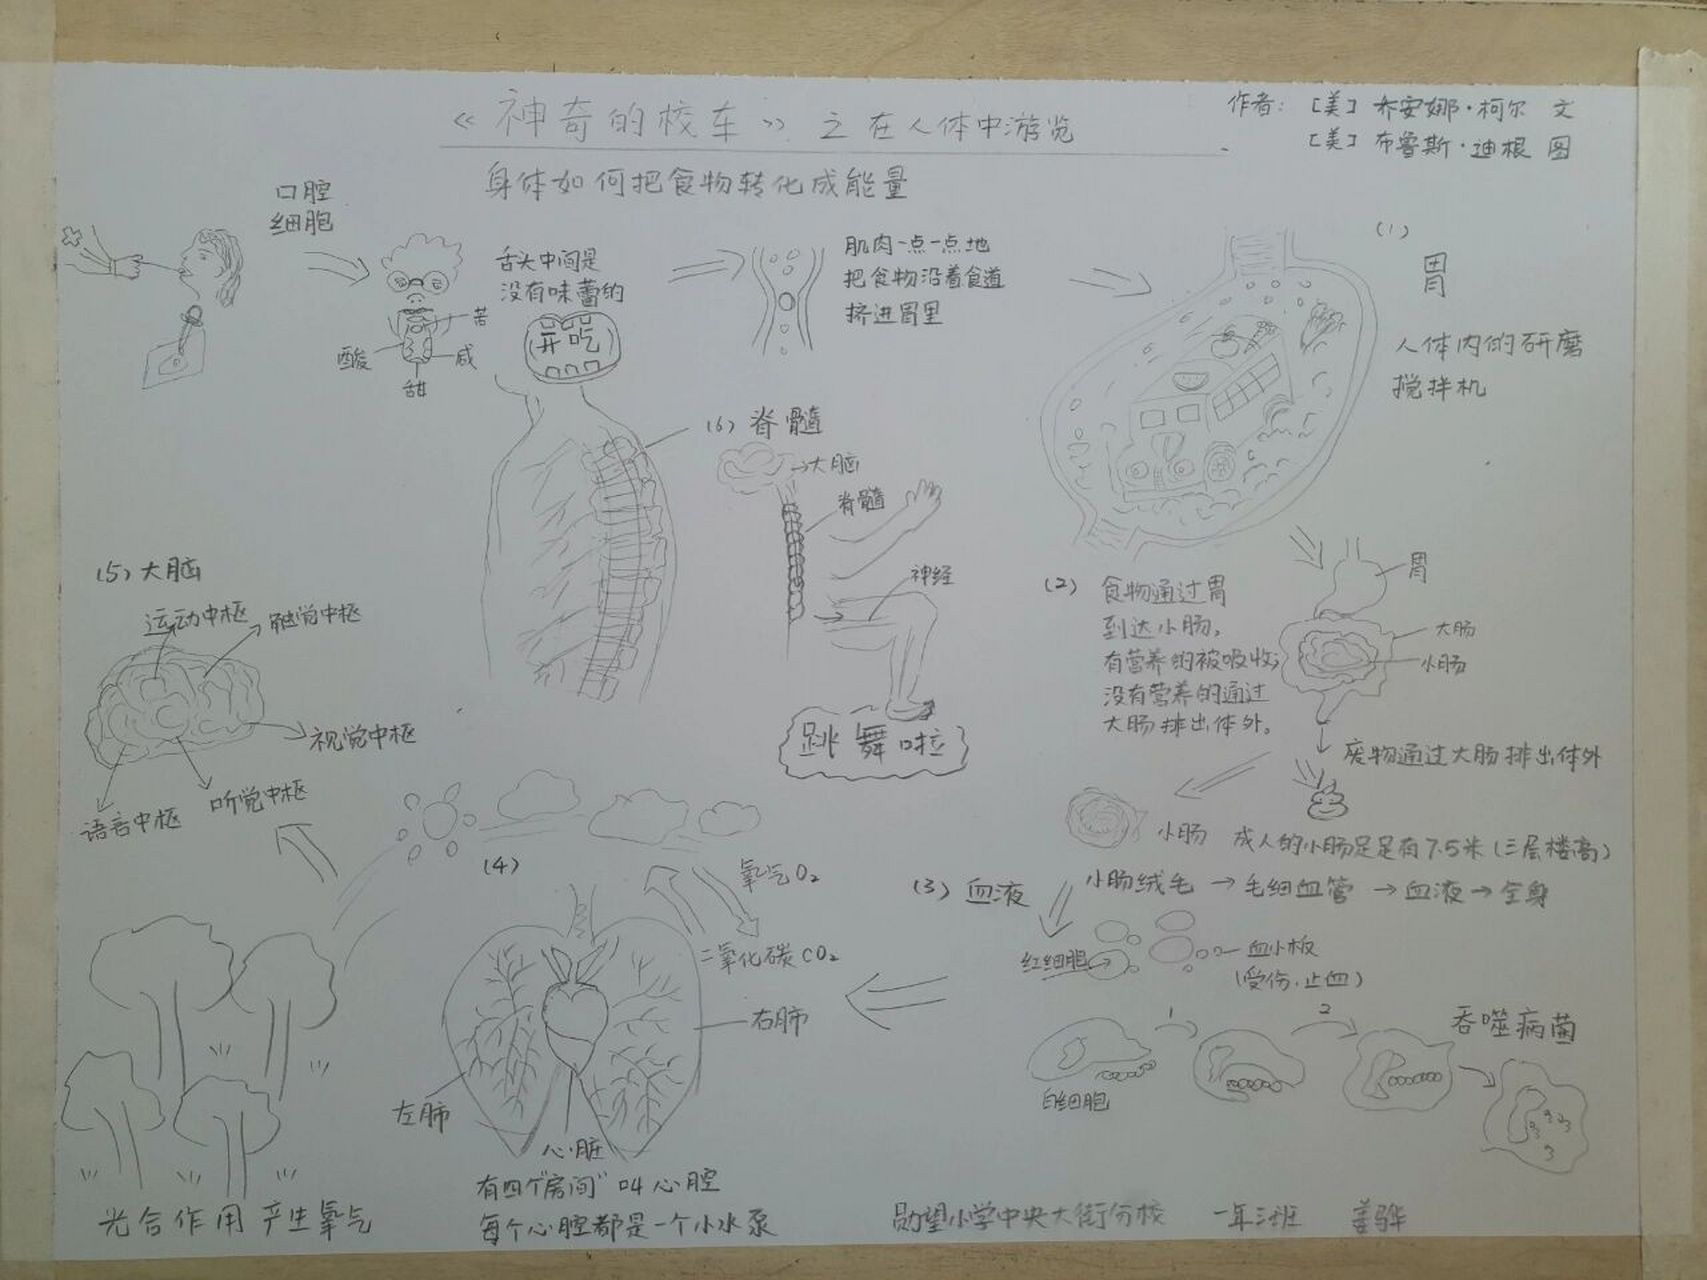 《神奇的校车》之在人体中游览
作者：［美］乔安娜·柯尔 文
［美］布鲁斯·迪根 图
身体如何把食物转化成能量
口腔
细胞
苦
酸
咸
甜
舌头中间是
没有味蕾的
开吃
肌肉一点一点地
把食物沿着食道
挤进胃里
(1)
胃
人体内的研磨
搅拌机
(2) 食物通过胃
到达小肠，
有营养的被吸收；
没有营养的通过
大肠排出体外。
胃
大肠
小肠
废物通过大肠排出体外
小肠 成人的小肠足足有7.5米(三层楼高)
(3) 血液
小肠绒毛→毛细血管→血液→全身
红细胞
血小板
(受伤.止血)
1
2
吞噬病菌
白细胞
(4)
氧气O2
二氧化碳CO2
右肺
左肺
心脏
有四个“房间”叫心腔
每个心腔都是一个小水泵
光合作用产生氧气
(5) 大脑
运动中枢
触觉中枢
视觉中枢
听觉中枢
语言中枢
(6) 脊髓
大脑
脊髓
神经
跳舞啦
勋望小学中央大街分校 一年三班 姜骅